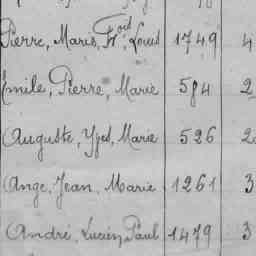 Pierre, Marie, Fois, Louis 1749 4
Emile, Pierre, Marie 584 2
Auguste, Yves, Marie 526 2
Ange, Jean, Marie 1261 3
André, Lucien, Paul 1479 3